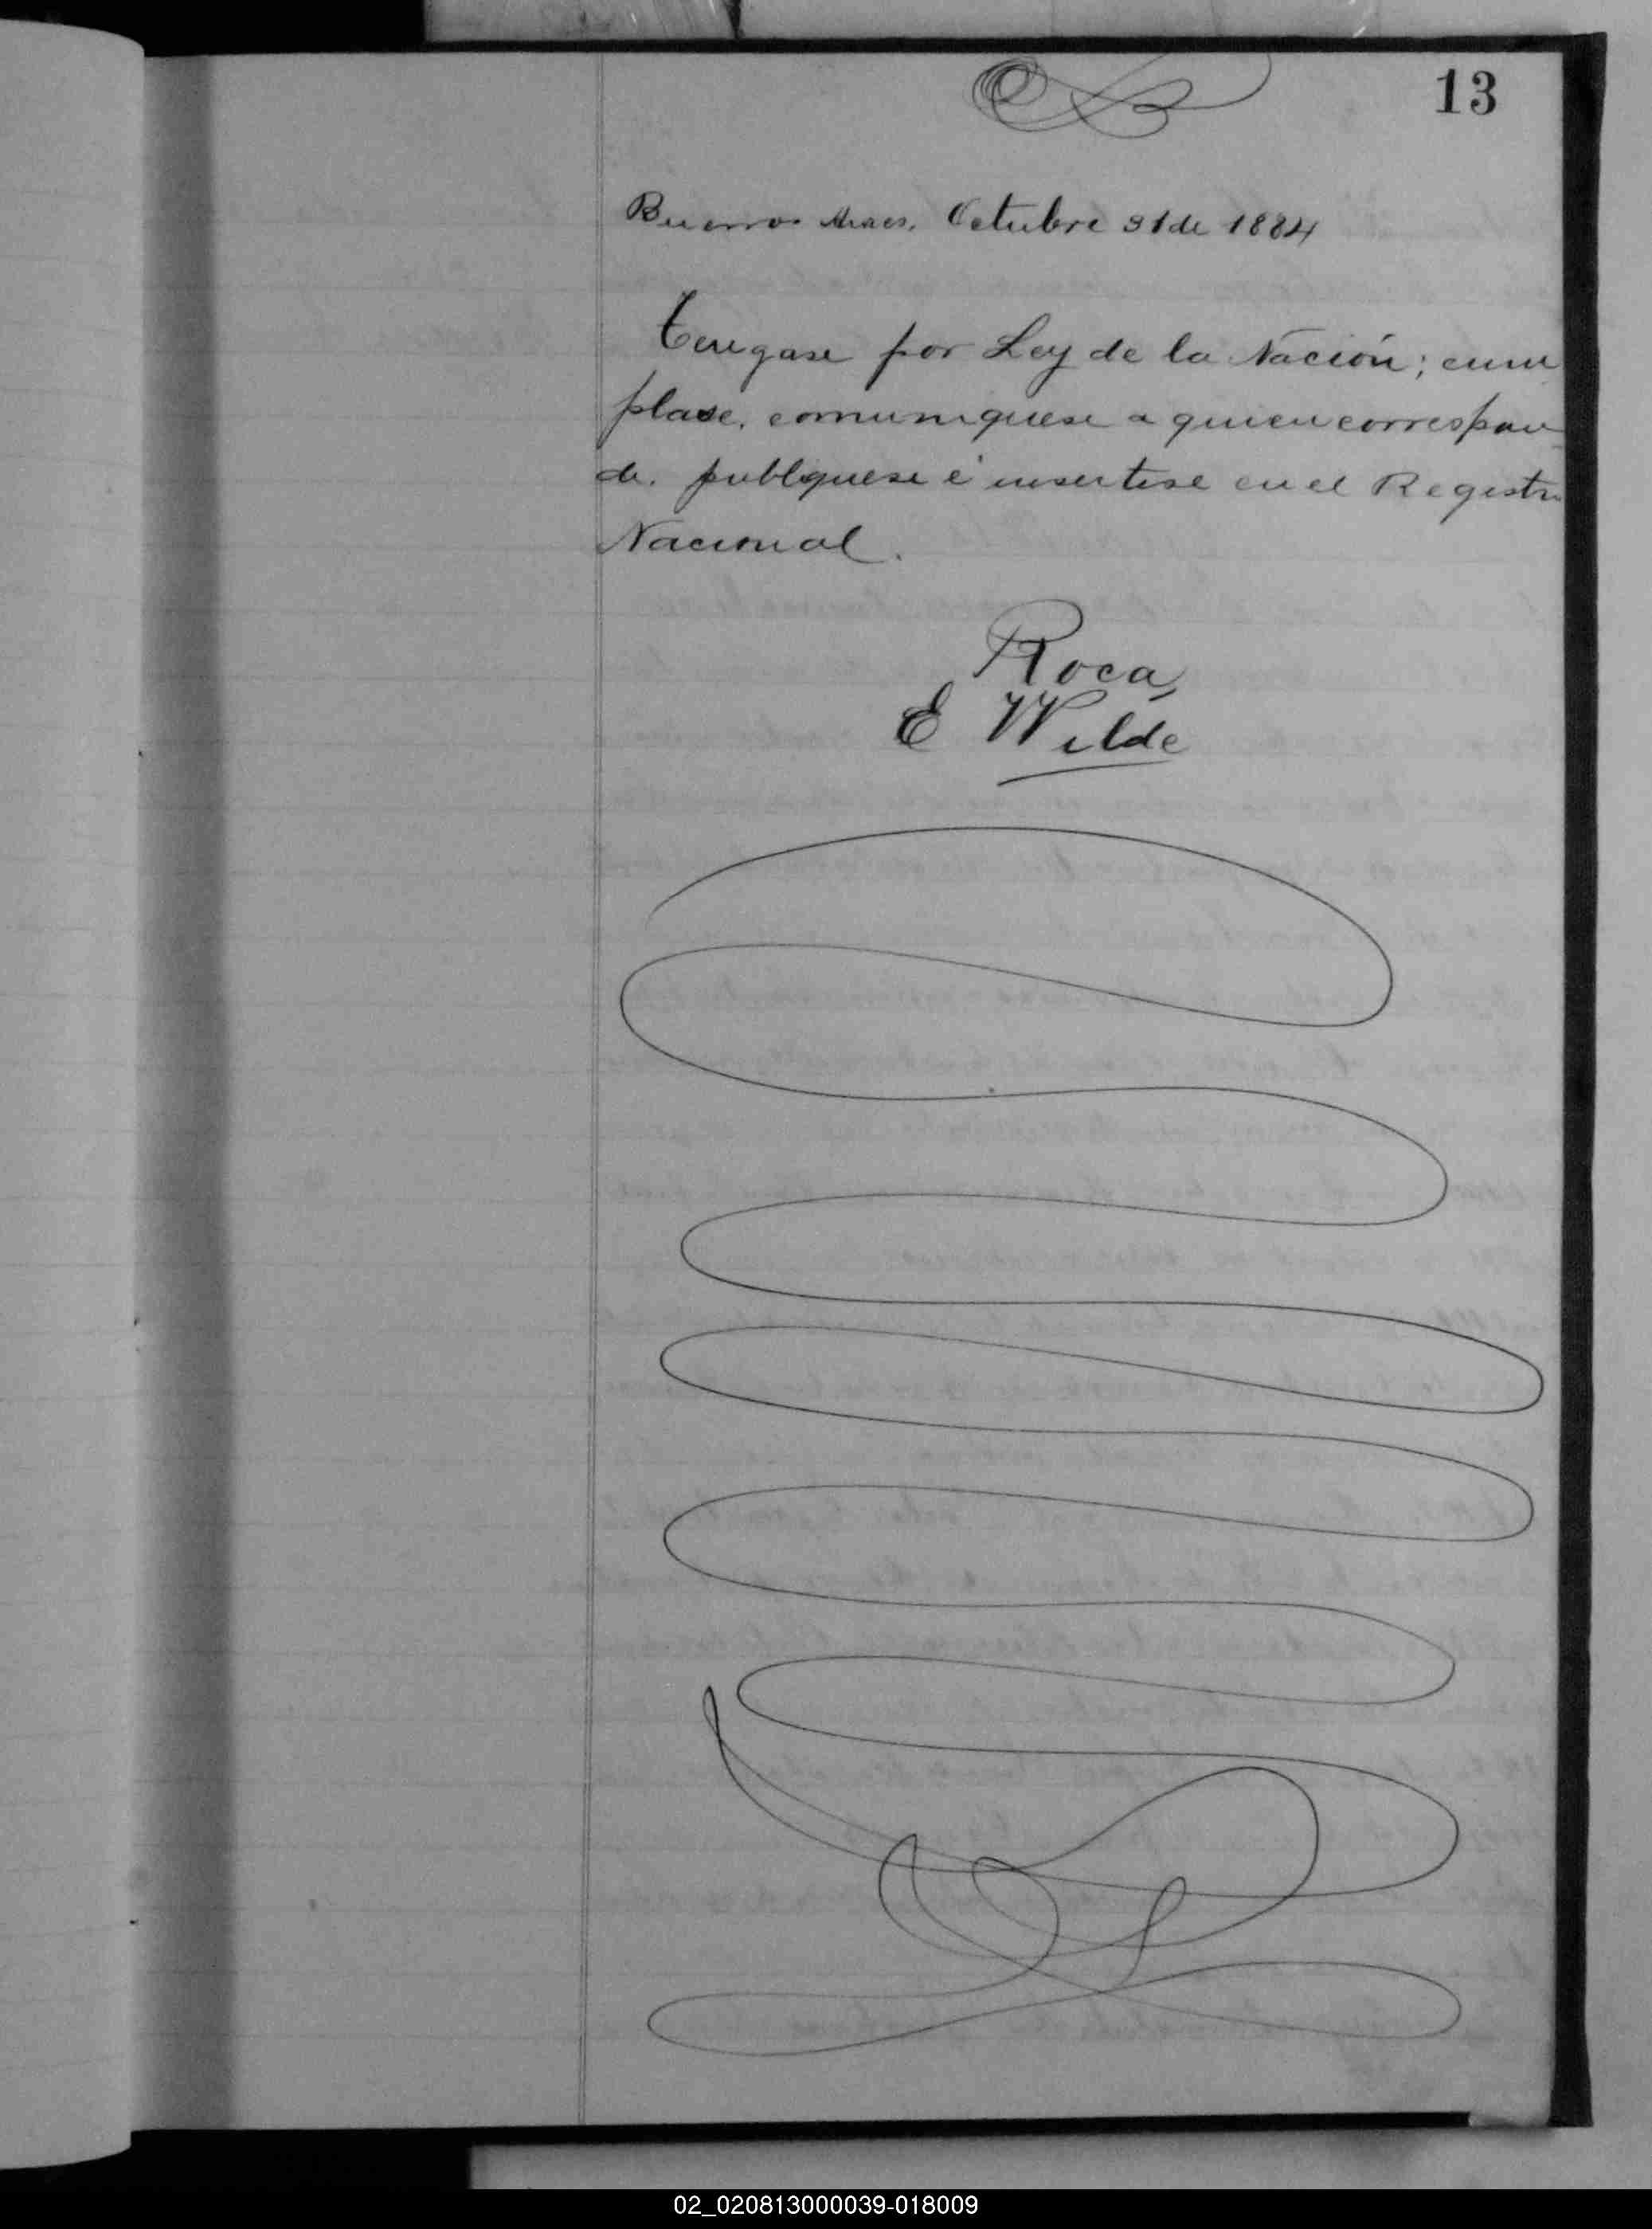 13
Buenos Aires, Octubre 31 de 1884
Tengase por Ley de la Nación; cum
plase, comuniquese a quien correspon
da, publiquese é insertese en el Registro
Nacional.
Roca
E Wilde
02_020813000039-018009